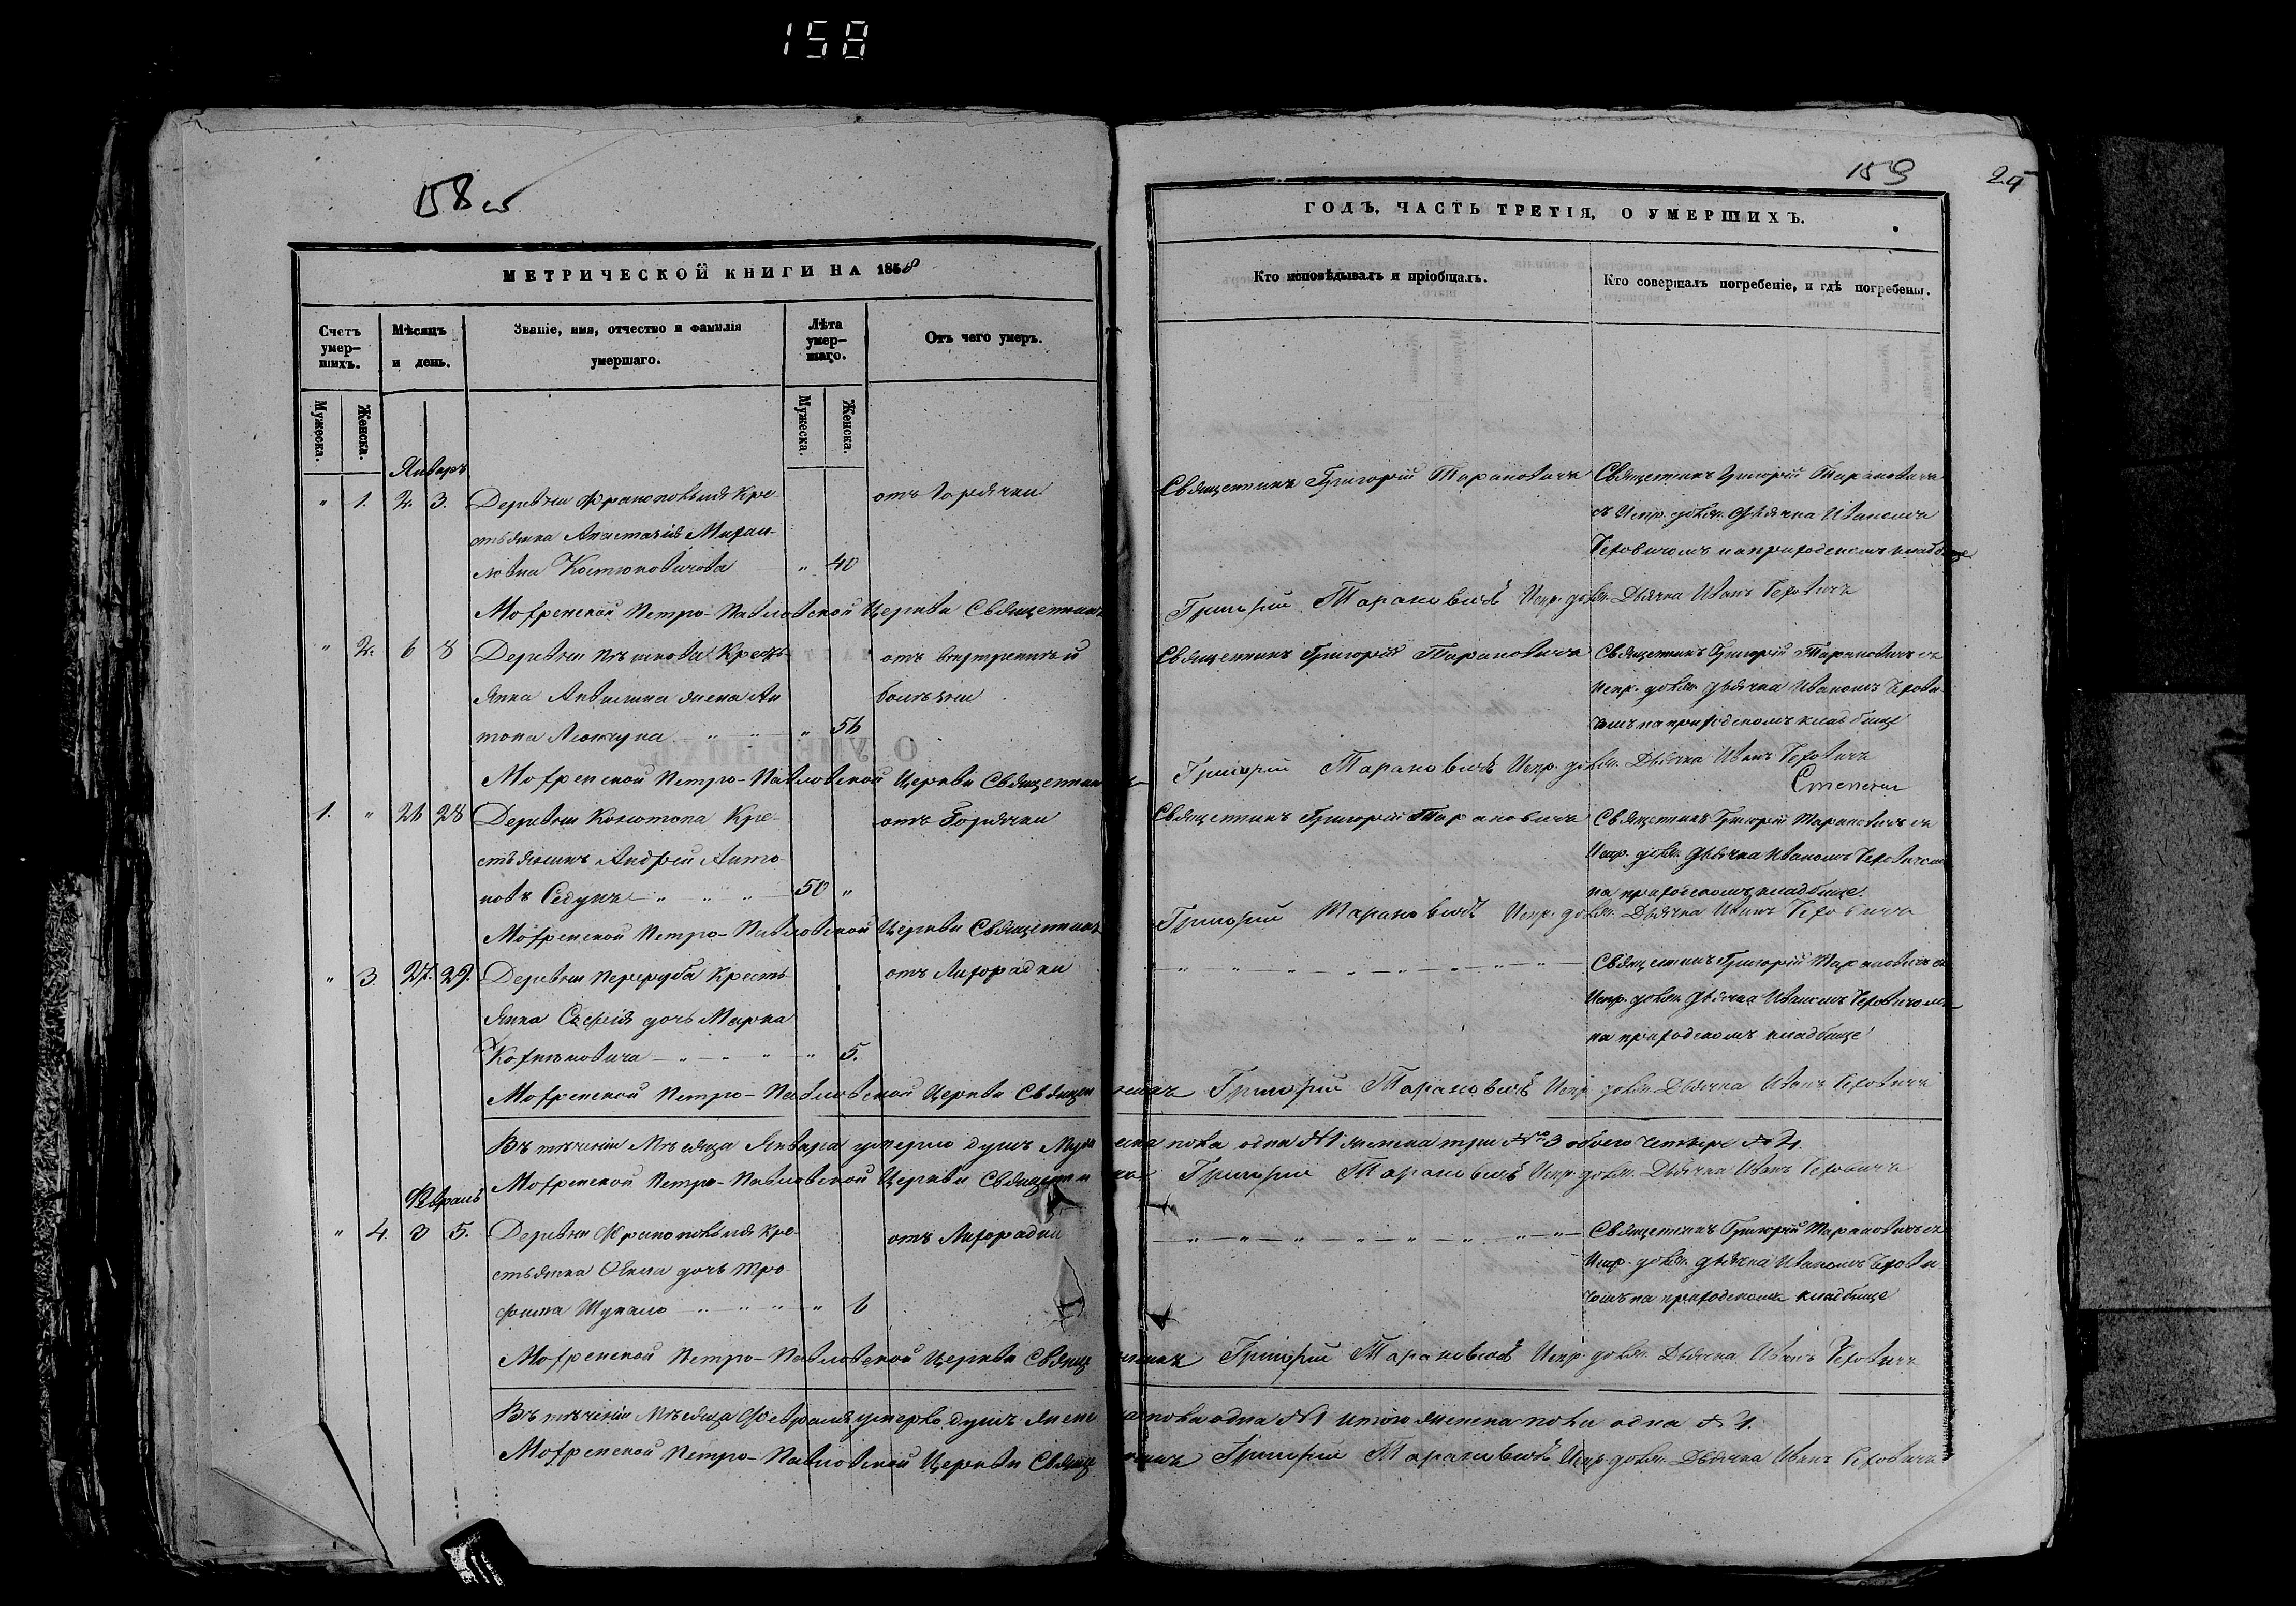 158
158 об
МЕТРИЧЕСКОЙ КНИГИ НА 1858
Счетъ умер-шихъ.
Мѣсяцъ и день.
Званіе, имя, отчество и фамилія умершаго.
Лѣта умер-шаго.
Отъ чего умеръ.
Мужеска.
Женска.
Мужеска.
Женска.
Январь
" 1. 2. 3. Деревни Франополья Кре-
стьянка Анастасія Михай-
ловна Костюковичова " 40
отъ горячки
Мохренской Петро-Павловской Церкви Священникъ
" 2. 6 8 Деревни Крестъ-
янка жена Ан
тона " " " 56
отъ внутренней
болѣзни
Мохренской Петро-Павловской Церкви Священникъ
1. " 26 28 Деревни Конотопа Кре-
стьянинъ Андрей Анто-
новъ Седунъ " " " 50 "
отъ Горячки
Мохренской Петро-Павловской Церкви Священникъ
" 3. 27. 29. Деревни Переруба Кресть
янка дочь Марка
" " " " 5.
отъ Лихорадки
Мохренской Петро-Павловской Церкви Священ
Въ теченіи Мѣсяца Января умерло душъ Муж
Мохренской Петро-Павловской Церкви Священни
Февраль
" 4. 3 5. Деревни Франополья Кре-
стьянка дочь Тро-
фима Шукало " " " " 6
отъ Лихорадки
Мохренской Петро-Павловской Церкви Священ
Въ теченіи Мѣсяца Февраля умерло душъ женс
Мохренской Петро-Павловской Церкви Священ
159
ГОДЪ, ЧАСТЬ ТРЕТІЯ, О УМЕРШИХЪ.
Кто исповѣдывалъ и пріобщалъ.
Кто совершалъ погребеніе, и гдѣ погребены.
Священникъ Григорій Тарановичъ
Священникъ Григорій Тарановичъ
съ Испр. долж. Дьячка Иваномъ
на приходскомъ кладбище
Григорій Тарановичъ Испр. долж. Дьячка Иванъ
Священникъ Григорій Тарановичъ
Священникъ Григорій Тарановичъ съ
Испр. долж. Дьячка Иваномъ
на приходскомъ кладбище
Григорій Тарановичъ Испр. долж. Дьячка Иванъ
Священникъ Григорій Тарановичъ
Священникъ Григорій Тарановичъ съ
Испр. долж. Дьячка Иваномъ
на приходскомъ кладбище
Григорій Тарановичъ Испр. долж. Дьячка Иванъ
Священникъ Григорій Тарановичъ съ
Испр. долж. Дьячка Иваномъ
на приходскомъ кладбище
никъ Григорій Тарановичъ Испр. долж. Дьячка Иванъ
еска пола одна №1 женска три №3 обоего четыре №4.
Григорій Тарановичъ Испр. долж. Дьячка Иванъ
Священникъ Григорій Тарановичъ съ
Испр. долж. Дьячка Иваномъ
на приходскомъ кладбище
никъ Григорій Тарановичъ Испр. долж. Дьячка Иванъ
ка пола одна №1 итого женска пола одна №1.
никъ Григорій Тарановичъ Испр. долж. Дьячка Иванъ